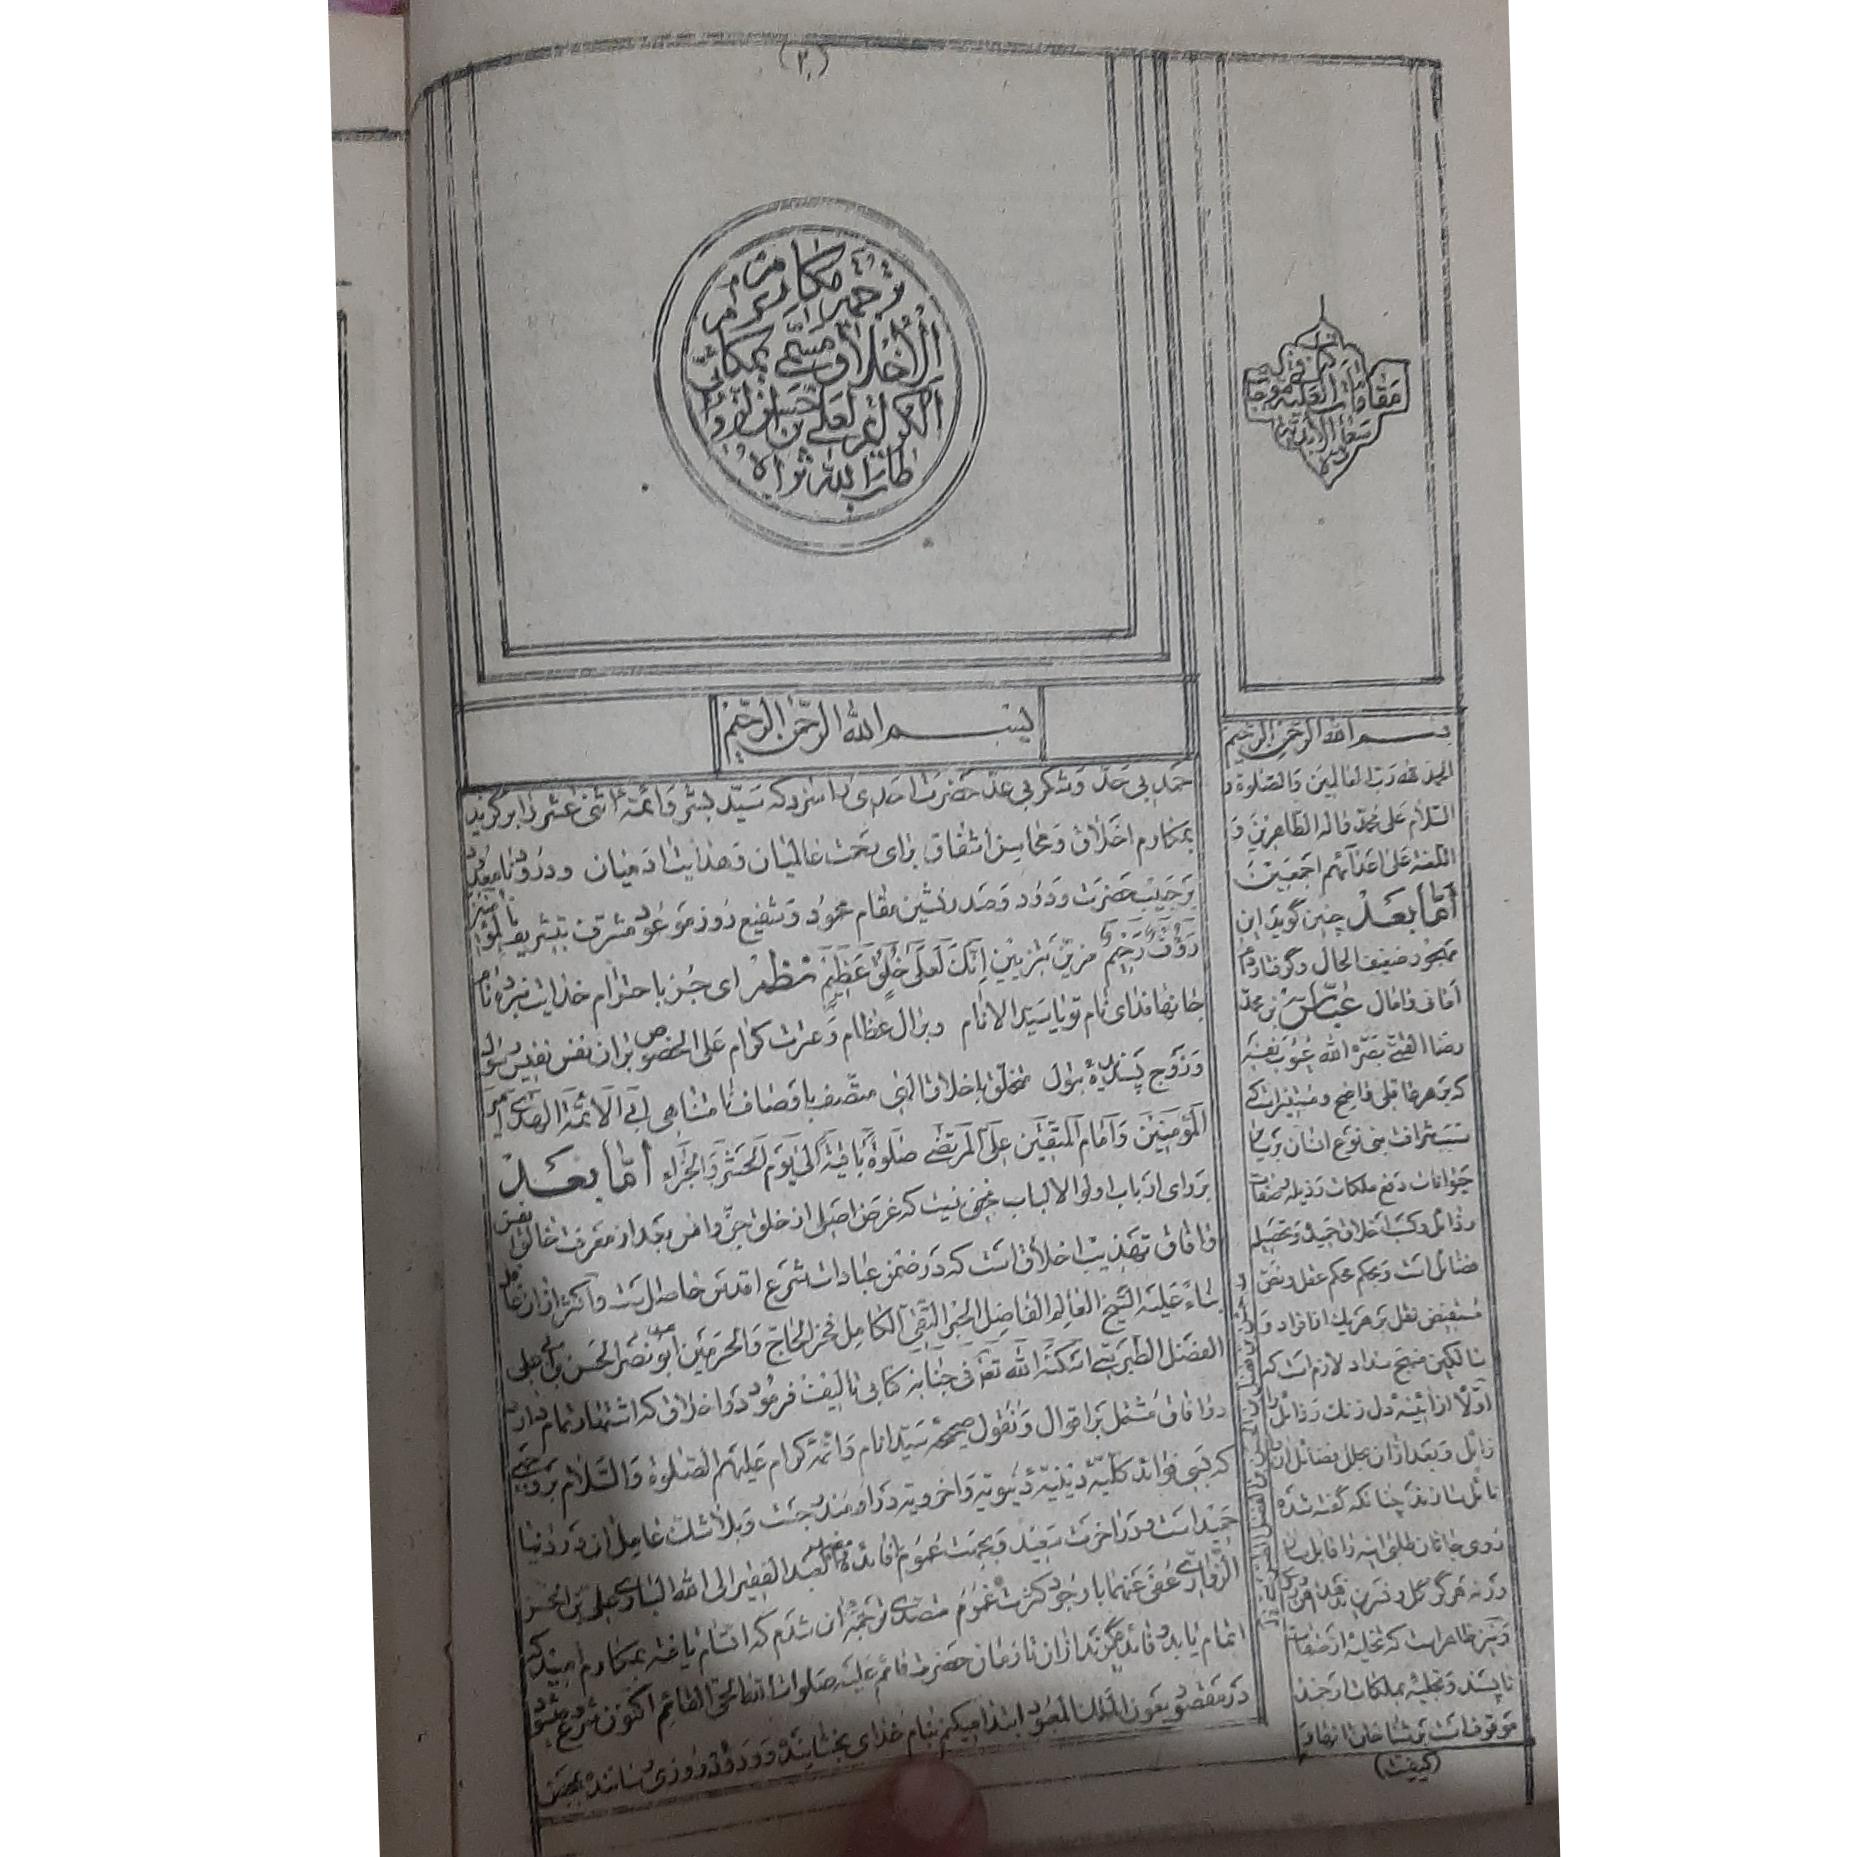 (۲)
ترجمه مکارم
الاخلاق مسمی بمکارم
الکرائم لعلی بن حسن الزواری
طاب الله ثراه
بسم الله الرحمن الرحیم
حمد بی حد و شکر بی عد حضرت احدی را سزد که سید بشر و ائمه اثنی عشر را برگزید
بمکارم اخلاق و محاسن اشفاق برای بحث عالمیان و هدایت ادمیان و درود نامعدود
بر حبیب حضرت ودود و صدر نشین مقام محمود و شفیع روز موعود مشرف بتشریف بالمؤمنین
رؤف رحیم مزین بتزیین انک لعلی خلق عظیم نظم ای جز باحترام خدایت نبرده نام
جانها فدای نام تو یا سید الانام و بر ال عظام و عترت کرام علی الخصوص بران نفس نفیس رسول
و زوج پسندیده بتول متخلق باخلاق الهی متصف باوصاف نامتناهی ابی الائمة الهدی امیر
المؤمنین و امام المتقین علی المرتضی صلوة باقیة الی یوم الحشر و الجزاء اما بعد
بر رای ارباب اولوا الالباب مخفی نیست که غرض اصلی از خلق جن و انس بعد از معرفت خالق انفس
و افاق تهذیب اخلاق است که در ضمن عبادات شرع اقدس حاصل است و اکثر از ان غافل
بناء علیه الشیخ العالم الفاضل الحبر التقی الکامل فخر الحاج و الحرمین ابو نصر الحسن بن ابی علی
الفضل الطبرسی اسکنه الله تعالی فی جنانه کتابی تالیف فرمود در اخلاق که اشتهار تمام دارد
در افاق مشتمل بر اقوال و نقول صحیحه سید انام و ائمه کرام علیهم الصلوة و السلام بر وجهی
که بسی فوائد کلیه دینیه دنیویه و اخرویه در او مندرجست و بلا شک عامل ان در دنیا
حمید است و در اخرت سعید و بجهت عموم فائده العبد الفقیر الی الله الباری علی بن الحسن
الزواری عفی عنهما با وجود کثرت غموم متصدی ترجمه ان شدم که اتسام یافته بمکارم امید که
اتمام یابد و فائده گیرند از ان تا زمان حضرت قائم علیه صلوات الله الحی القائم اکنون شروع میشود
در مقصود بعون الملک المعبود ابتدا میکنم بنام خدای بخشاینده و ودود روزی رساننده
بسم الله الرحمن الرحیم
الحمد لله رب العالمین و الصلوة و
السلام علی محمد و اله الطاهرین و
اللعنة علی اعدائهم اجمعین
اما بعد چنین گوید این
مهجور ضعیف الحال و گرفتار دام
امانی و امال عباس بن محمد
رضا القمی بصره الله عیوب نفسه
که بر هر عاقلی واضح و مستبین است که
سبب شرافت بنی نوع انسان بر سایر
حیوانات دفع ملکات رذیله و صفات
رذائل و کسب اخلاق جمیله و تحصیل
فضائل است و بحکم محکم عقل و نص
مستفیض نقل بر هر یک از افراد و
سالکین منهج سداد لازم است که
اولا از ائینه دل زنک رذائل را
زائل و بعد از ان بحلل فضائل ان را
نائل سازند چنانکه گفته شده
روی جانان طلبی اینه را قابل ساز
ورنه هرگز گل و نسرین ندمد ز اهن و روی
و نیز ظاهر است که تخلیه از صفات
ناپسند و تحلیه بملکات ارجمند
موقوف است بر شناختن انها و
(کیفیت)